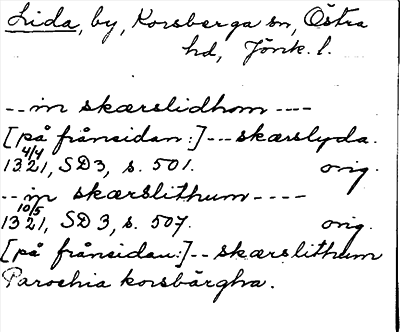 Lida, by, Korsberga sn, Östra
hd, Jönk. l.
-- in skærslidhom ----
[på frånsidan:] --- skærslyda.
4/4
1321, SD3, s. 501. orig.
-- in skærslithum ----
10/5
1321, SD3, s. 507. orig.
[på frånsidan:] -- skærslithum
Parochia korsbärgha.